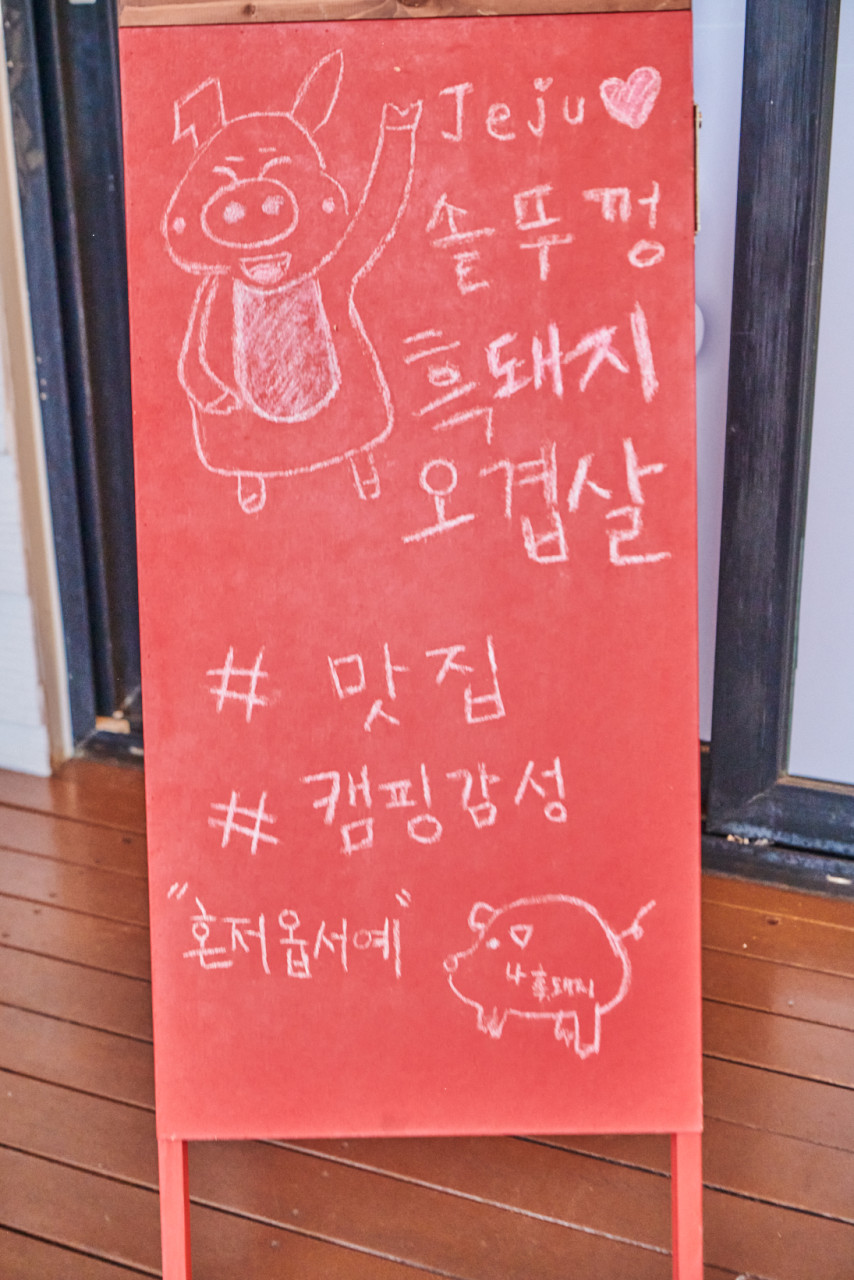 Jeju
솔뚜껑
흑돼지
오겹살
# 맛집
# 캠핑감성
"혼저옵서예"
나 흑돼지